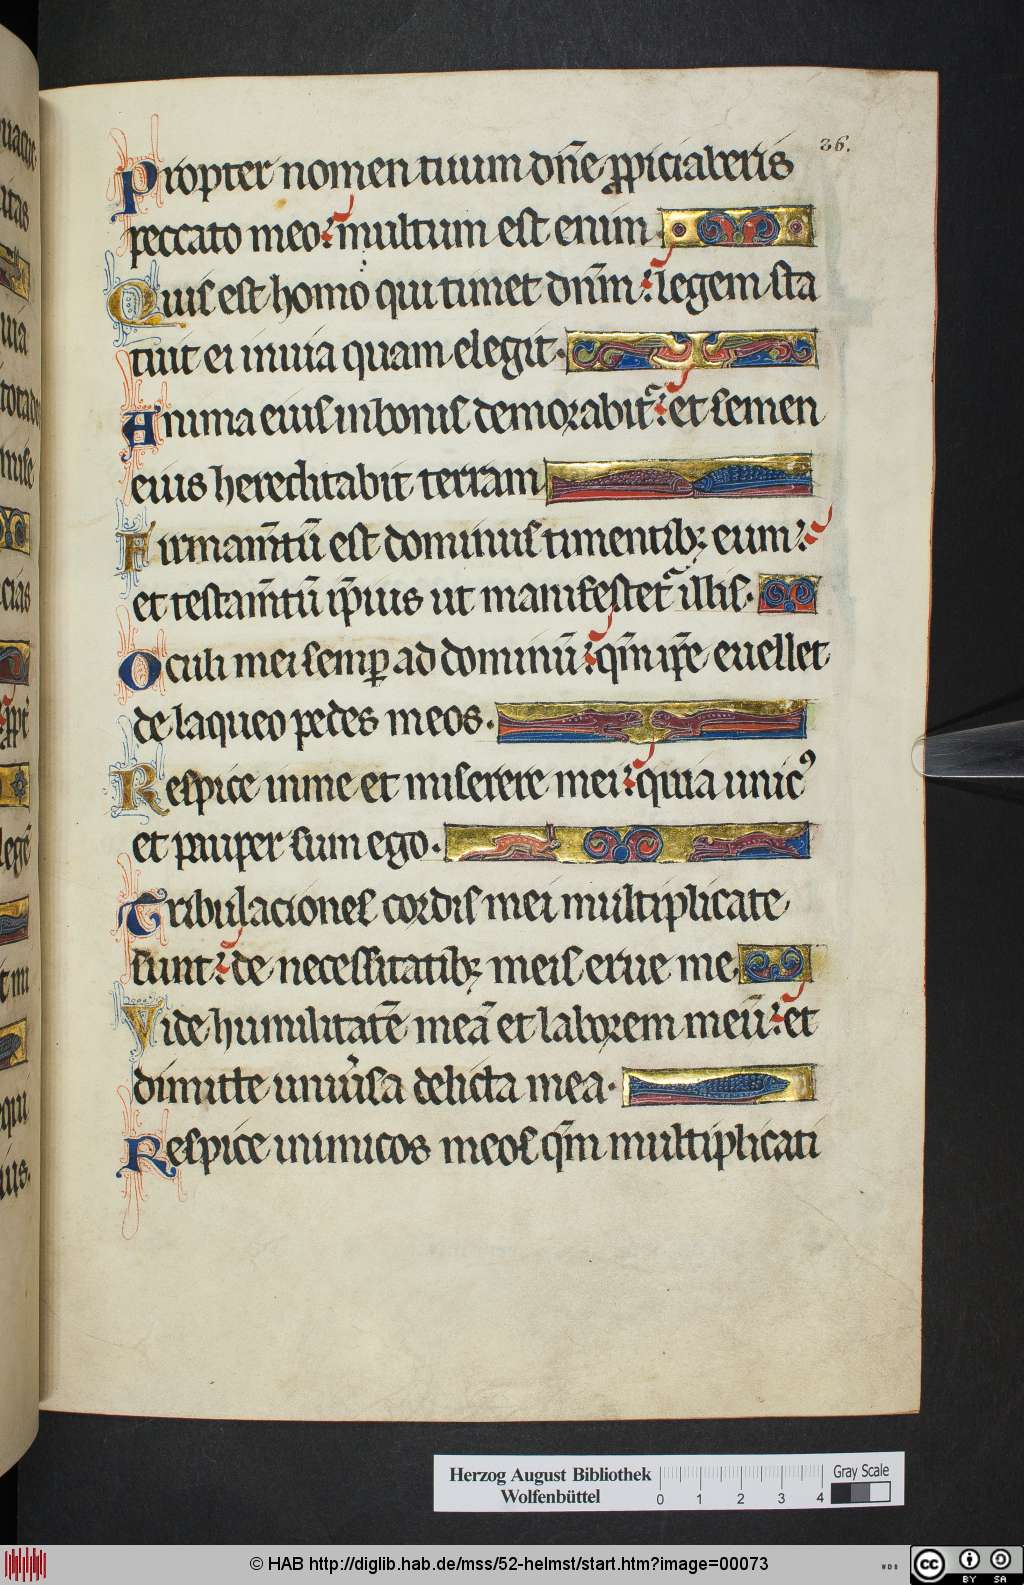 36.
Propter nomen tuum dn̄e ꝓpiciaberis
peccato meo: multum est enim.
Quis est homo qui timet dn̄m: legem sta
tuit ei inuia quam elegit.
Anima eius inbonis demorabit᷑: et semen
eius hereditabit terram
Firmam̄tū est dominus timentibꝫ eum:
et testam̄tū ip̄ius ut manifestet᷑ illis.
Oculi mei semꝑ ad dominū: qm̄ ip̄e euellet
de laqueo pedes meos.
Respice inme et miserere mei: quia unicꝰ
et pauper sum ego.
Tribulaciones cordis mei multiplicate
sunt: de necessitatibꝫ meis erue me
Vide humilitatē meā et laborem meū: et
dimitte uniu̾sa delicta mea.
Respice inimicos meos qm̄ multiplicati
Herzog August Bibliothek
Wolfenbüttel
0 1 2 3 4
Gray Scale
© HAB http://diglib.hab.de/mss/52-helmst/start.htm?image=00073
cc BY SA